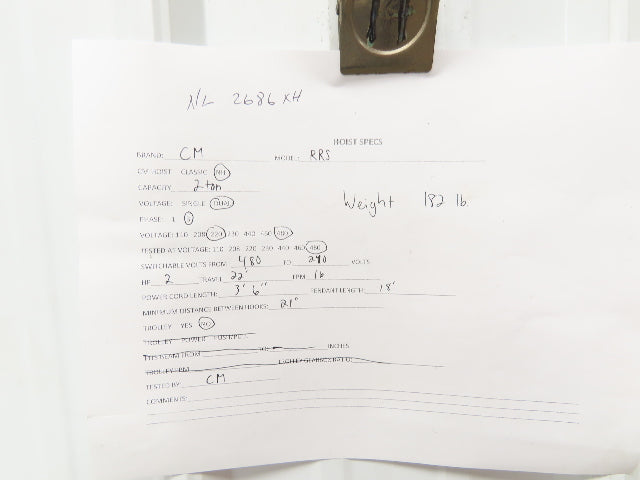 N/L 2686 XH
HOIST SPECS
BRAND: CM MODEL: RRS
CM HOIST CLASSIC NH
CAPACITY 2 ton
Weight 182 lb.
VOLTAGE: SINGLE DUAL
PHASE: 1 3
VOLTAGE: 110 208 220 230 440 460 480
TESTED AT VOLTAGE: 110 208 220 230 440 460 480
SWITCHABLE VOLTS FROM 480 TO 240 VOLTS
HP 2 TRAVEL 22' FPM 16
POWER CORD LENGTH: 3' 6" PENDANT LENGTH: 18'
MINIMUM DISTANCE BETWEEN HOOKS: 21"
TROLLEY YES NO
TROLLEY POWER PUSH/PULL
FITS BEAM FROM TO INCHES
TROLLEY FPM
TESTED BY CM
COMMENTS: